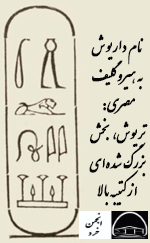 نام داریوش
به هیروگلیف
مصری:
تریوش، بخش
بزرگ شده‌ای
از کتیبه بالا
انجمن
خرد